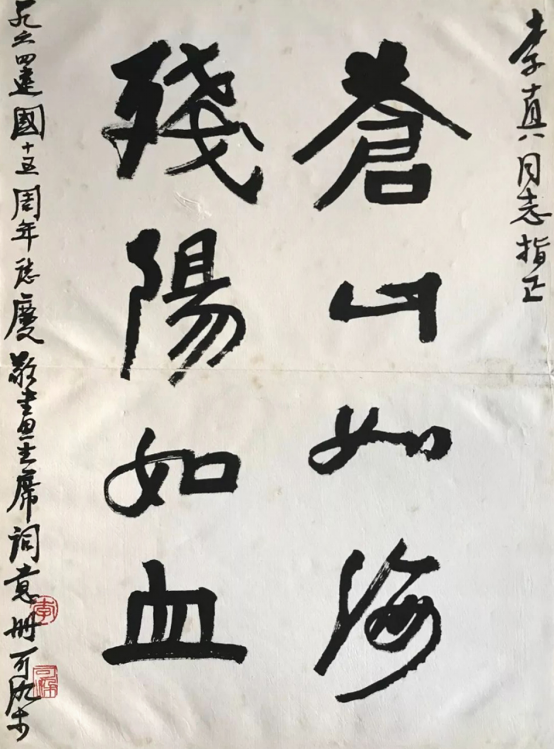 李真同志指正
蒼山如海
殘陽如血
一九六四建國十五周年誌慶敬畫主席詞意册可染
李
可染